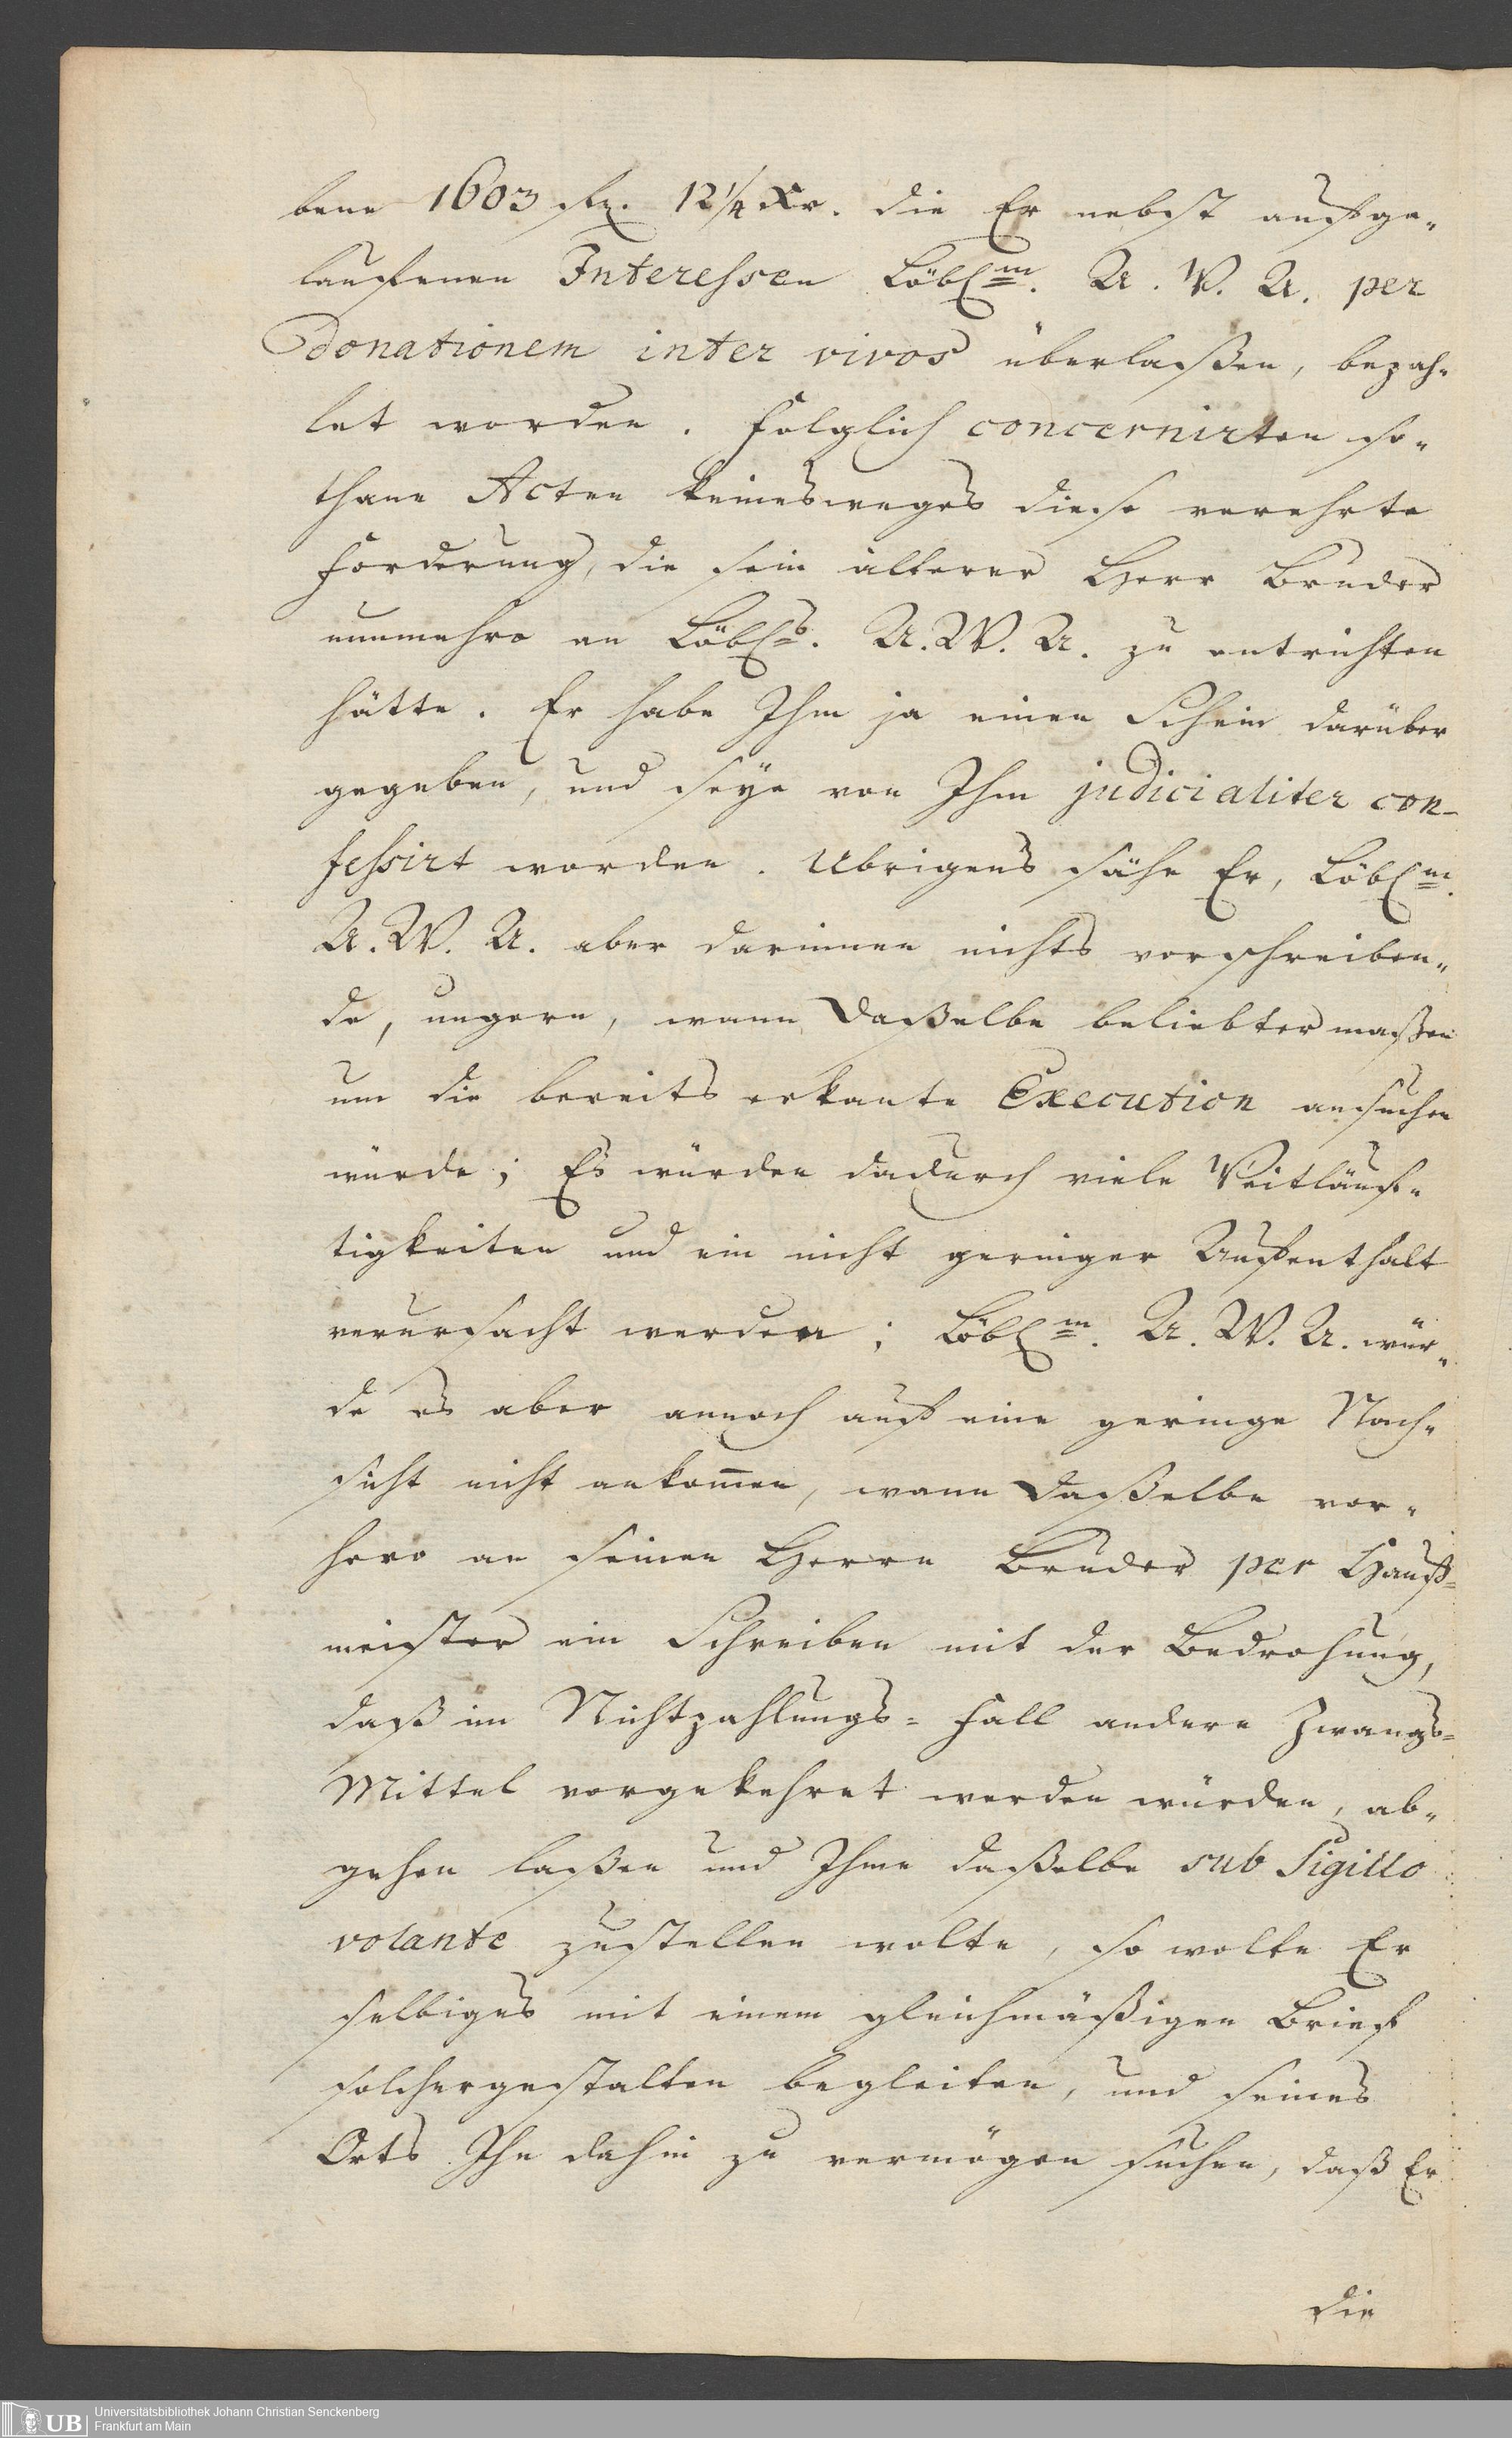 bene 1603 fl. 12 1/4 Xr. die Er nebst aufge„
lauffenen Interessen Löbl.m A. W. A. per
donationem inter vivos überlaßen, bezah„
let worden. Folglich concernirten so„
thane Acten keinesweges diese verehrte
Forderung, die sein älterer Herr Bruder
nunmehro an Löbl.s A. W. A. zu entrichten
hätte. Er habe Ihm ja einen Schein darüber
gegeben, und seye von Ihm judicialiter con-
fessirt worden. Ubrigens sähe Er, Löbl.m
A. W. A. aber darinnen nichts vorschreiben„
de, ungern, wann Daßelbe beliebter maßen
um die bereits erkante Execution ansuchen
würde; Es würden dadurch viele Weitläuf„
tigkeiten und ein nicht geringer Auffenthalt
verursacht werden; Löbl.m A. W. A. wür„
de es aber annoch auf eine geringe Nach„
sicht nicht ankom̄en, wann Daßelbe vor„
hero an seinen Herrn Bruder per Hauß-
meister ein Schreiben mit der Bedrohung,
daß im Nichtzahlungs-Fall andere Zwangs-
Mittel vorgekehret werden würden, ab„
gehen laßen und Ihme daßelbe sub Sigillo
volante zustellen wolte, so wolte Er
selbiges mit einem gleichmäßigen Brief
solchergestalten begleiten, und seines
Orts Ihn dahin zu vermögen suchen, daß Er
die
UB Universitätsbibliothek Johann Christian Senckenberg
Frankfurt am Main